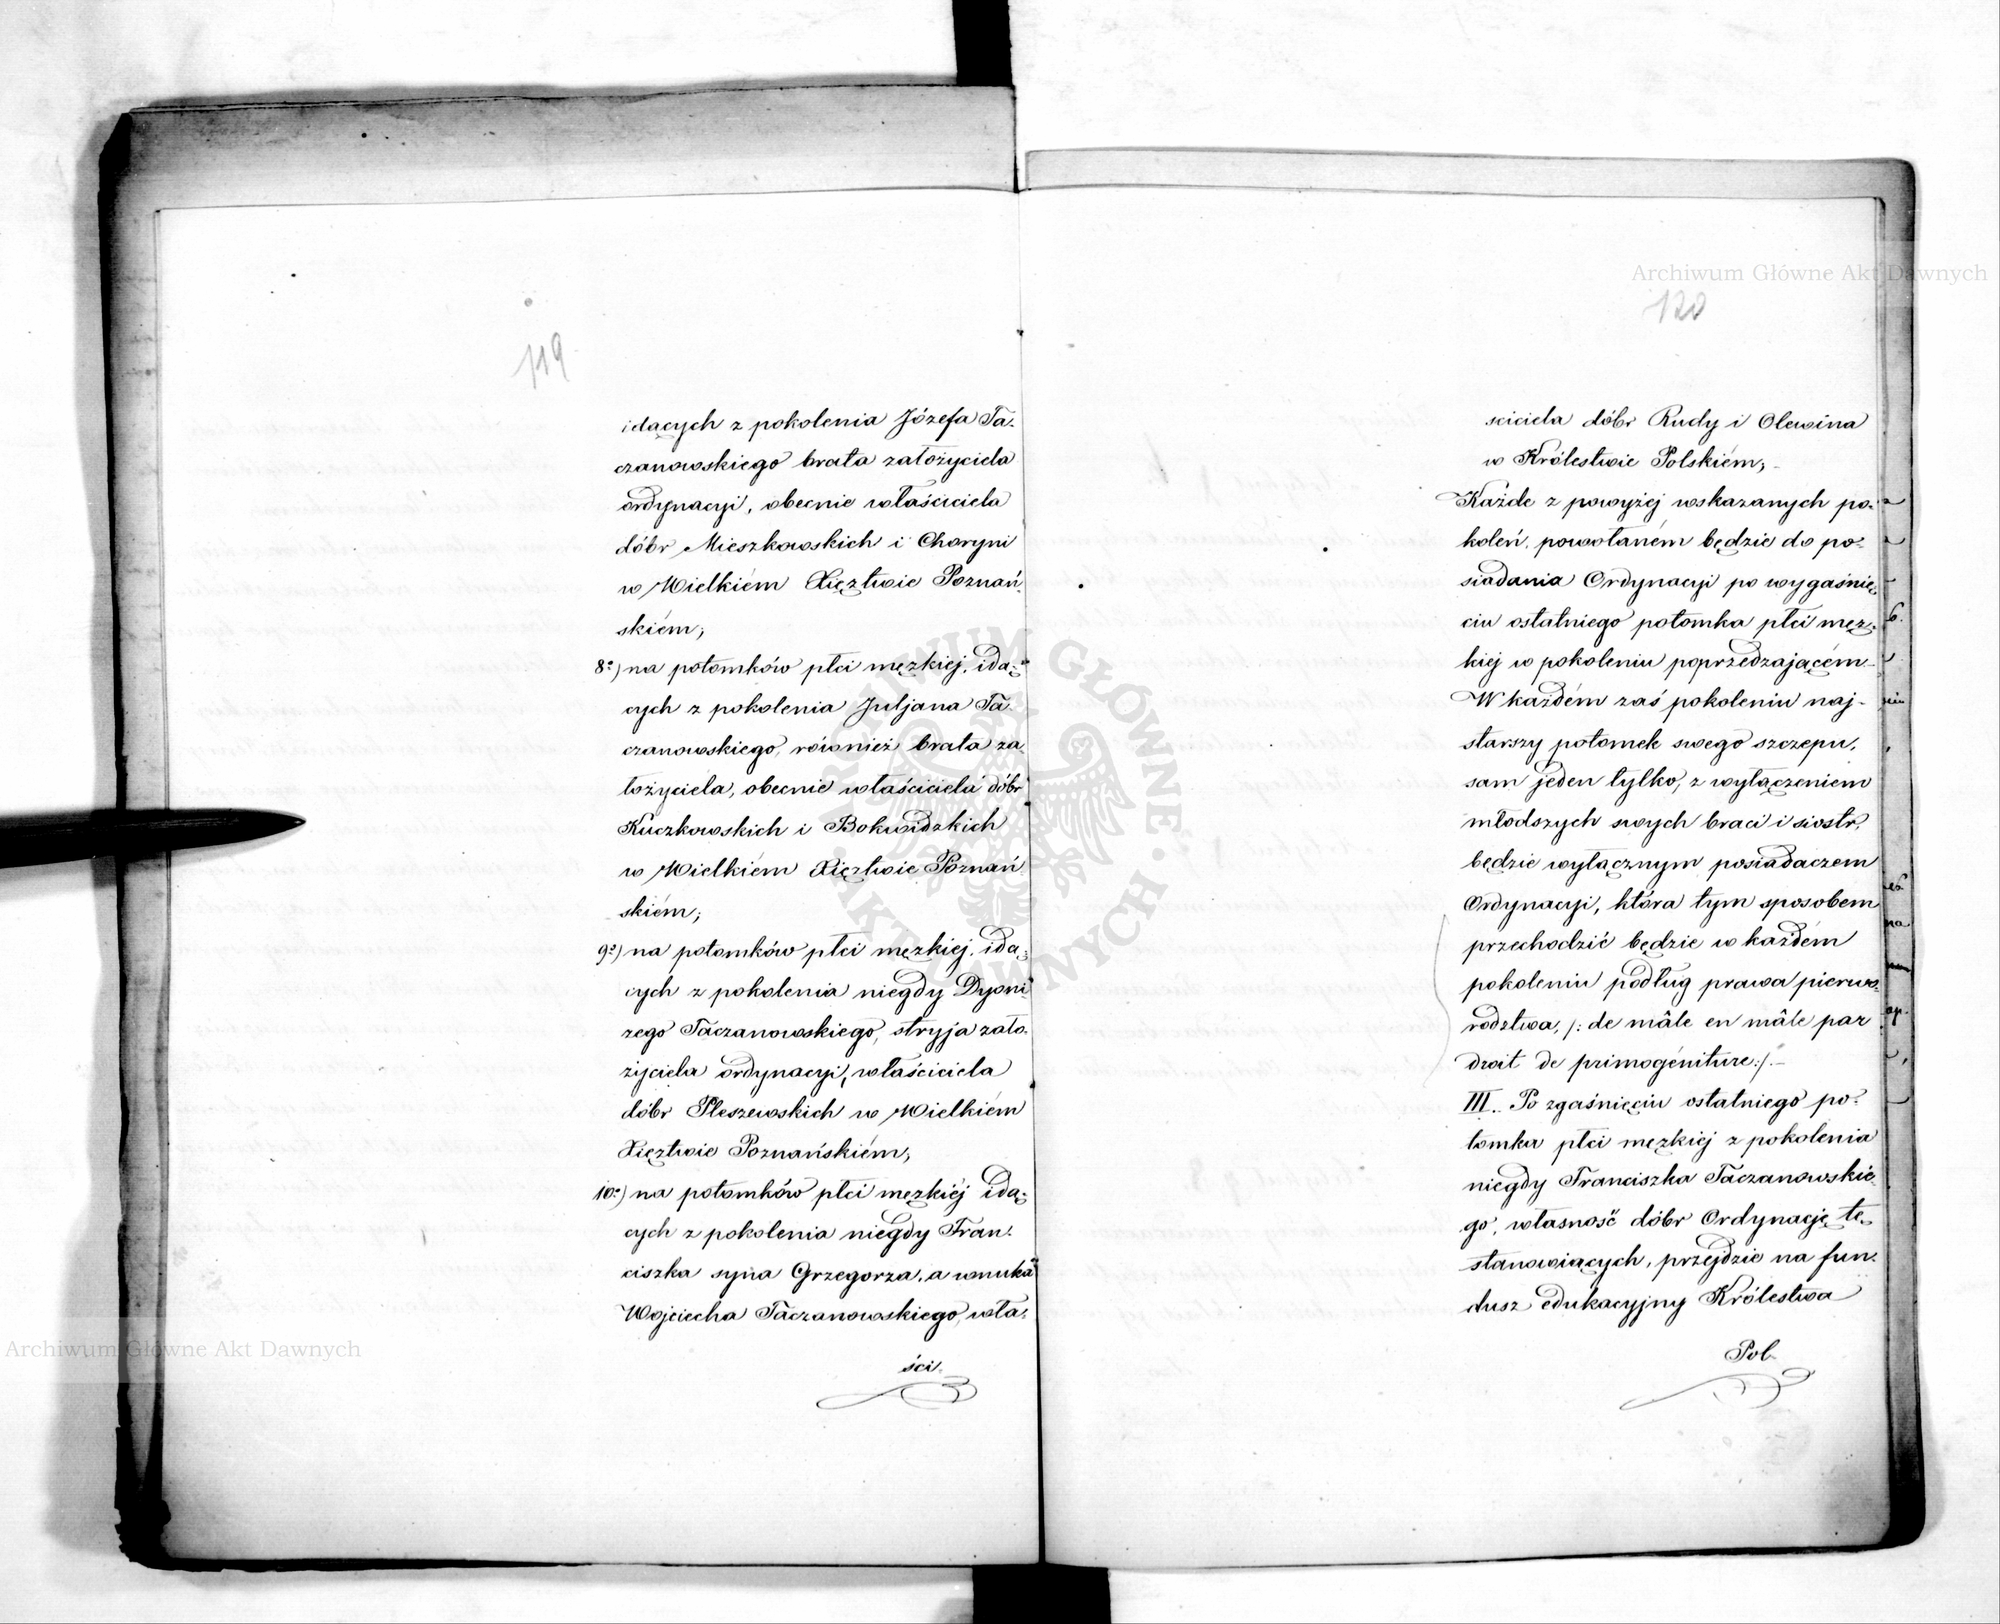 119
idących z pokolenia Józefa Ta-
czanowskiego brata założyciela
ordynacyi, obecnie właściciela
dóbr Mieszkowskich i Choryni
w Wielkiém Xięztwie Poznań-
skiém;
8o) na potomków płci męzkiej, idą-
cych z pokolenia Juljana Ta-
czanowskiego, również brata za-
łożyciela, obecnie właściciela dóbr
Kuczkowskich i Bokwidzkich
w Wielkiém Xięztwie Poznań-
skiém;
9o) na potomków płci męzkiej, idą-
cych z pokolenia niegdy Dyoni-
zego Taczanowskiego, stryja zało-
życiela ordynacyi, właściciela
dóbr Pleszewskich w Wielkiém
Xięztwie Poznańskiém;
10o) na potomków płci męzkiéj idą-
cych z pokolenia niegdy Fran-
ciszka syna Grzegorza, a wnuka
Wojciecha Taczanowskiego, wła-
ści-
120
sciciela dóbr Rudy i Olewina
w Królestwie Polskiém;
Każde z powyżej wskazanych po-
koleń, powołaném będzie do po-
siadania Ordynacyi po wygaśnię-
ciu ostatniego potomka płci męz-
kiej w pokoleniu poprzedzającém.
W każdém zaś pokoleniu naj-
starszy potomek swego szczepu,
sam jeden tylko, z wyłączeniem
młodszych swych braci i siostr,
będzie wyłącznym posiadaczem
Ordynacyi, która tym sposobem
przechodzić będzie w każdém
pokoleniu podług prawa pierwo-
rodztwa, /: de mâle en mâle par
droit de primogéniture :/.
III. Po zgaśnięciu ostatniego po-
tomka płci męzkiej z pokolenia
niegdy Franciszka Taczanowskie-
go, własność dóbr Ordynację tę
stanowiących, przejdzie na fun-
dusz edukacyjny Królestwa
Pol-
Archiwum Główne Akt Dawnych
Archiwum Główne Akt Dawnych
ARCHIWUM GŁÓWNE AKT DAWNYCH